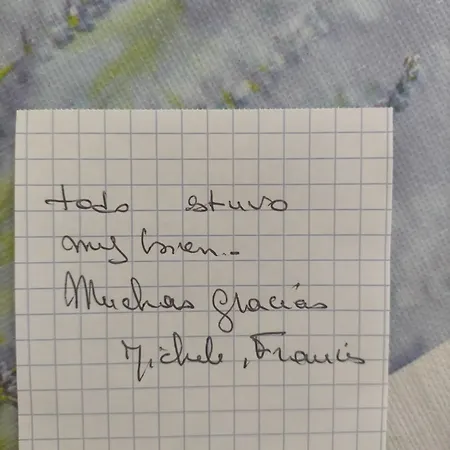 todo stuvo
muy bien...
Muchas graciàs
Michele, Francis